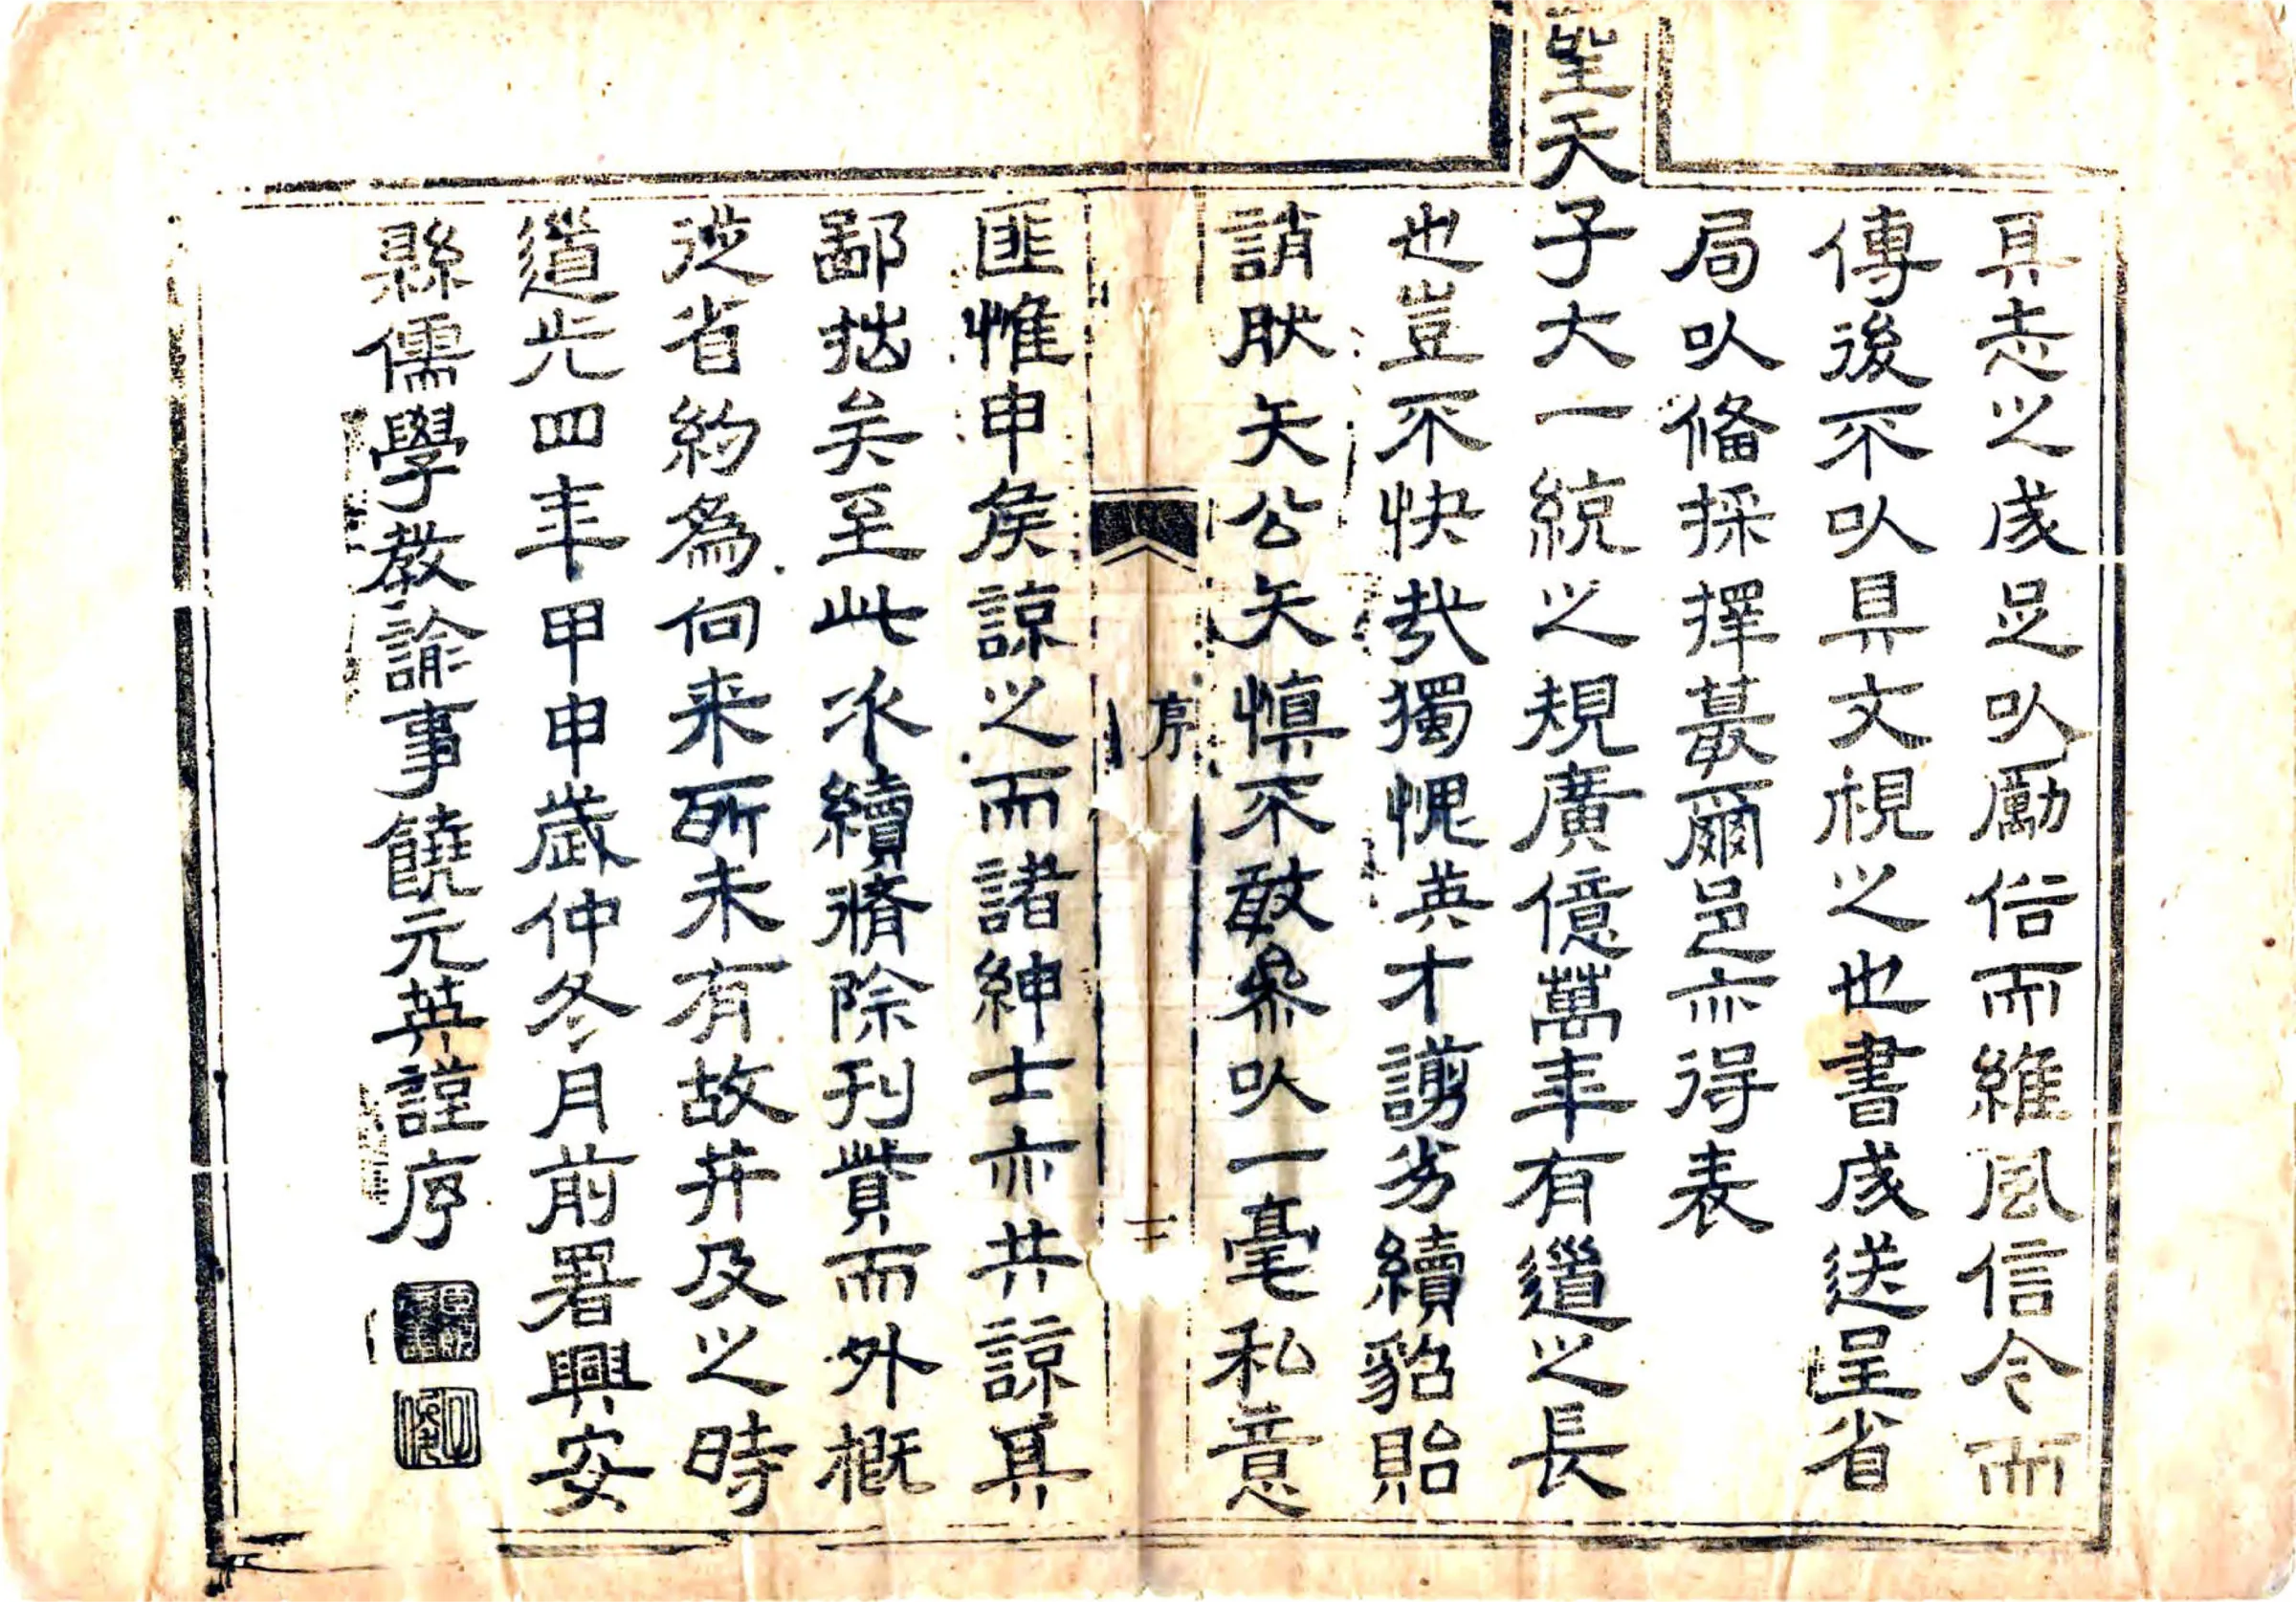 其志之成足㕥勵俗而維風信今而
傳後不㕥具文視之也書成送呈省
局㕥備採擇蕞爾邑亦得表
聖天子大一統之規廣億萬年有道之長
也豈不快哉獨愧英才謭劣續貂貽
誚肰矢公矢慎不敢參㕥一毫私意
序
二
匪惟申侯諒之而諸紳士亦共諒其
鄙拙矣至此次續脩除刊貲而外概
從省約為向来所未有故并及之時
道光四年甲申歲仲冬月前署興安
縣儒學教諭事饒元英謹序